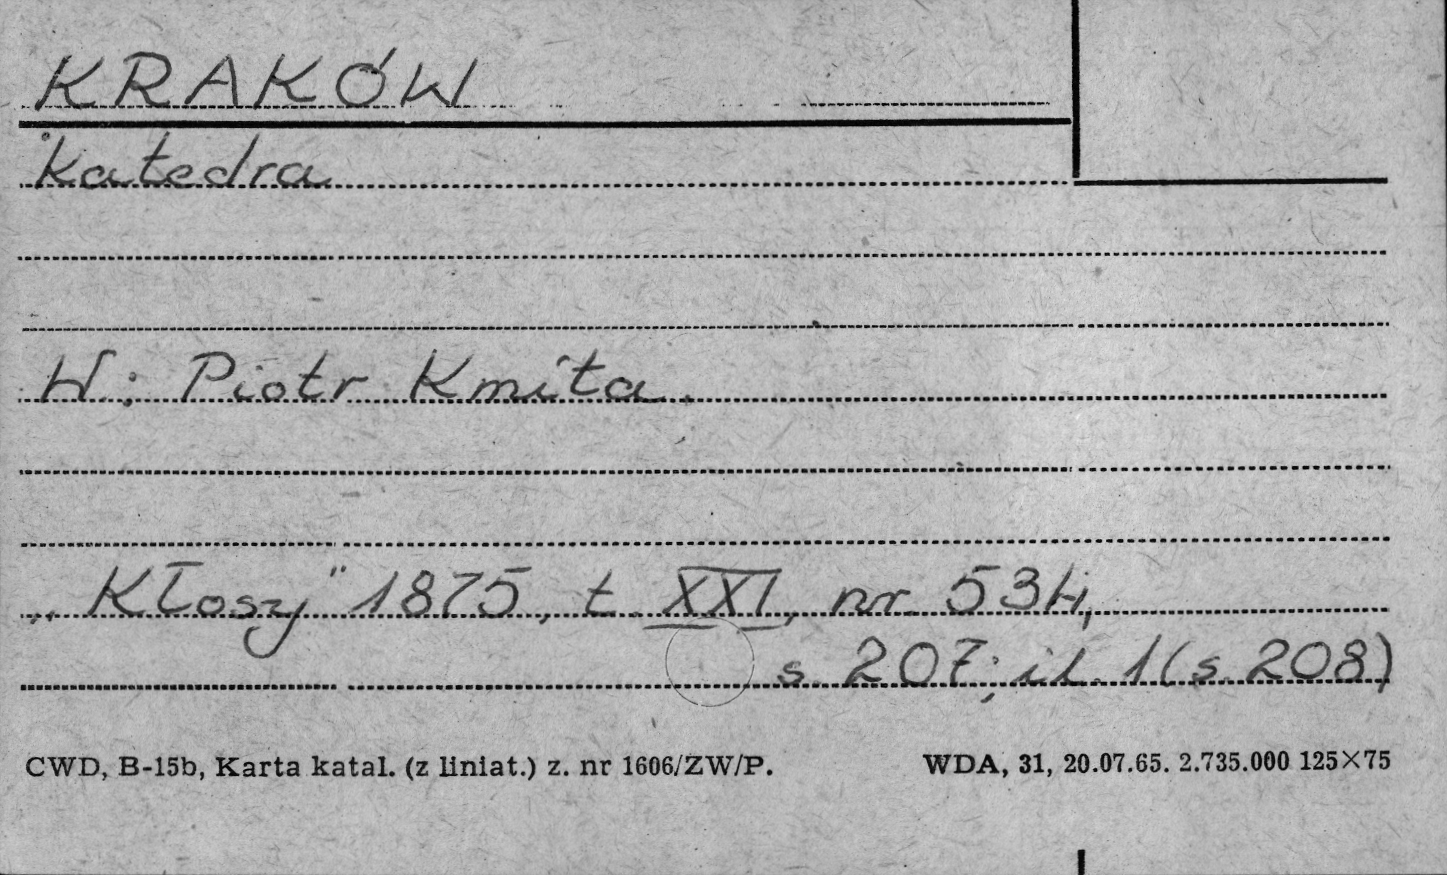 KRAKÓW
Katedra
W: Piotr Kmita.
„Kłosy" 1875, t. XXI, nr 534,
s. 207; il. 1 (s. 208)
CWD, B-15b, Karta katal. (z liniat.) z. nr 1606/ZW/P. WDA, 31, 20.07.65. 2.735.000 125×75